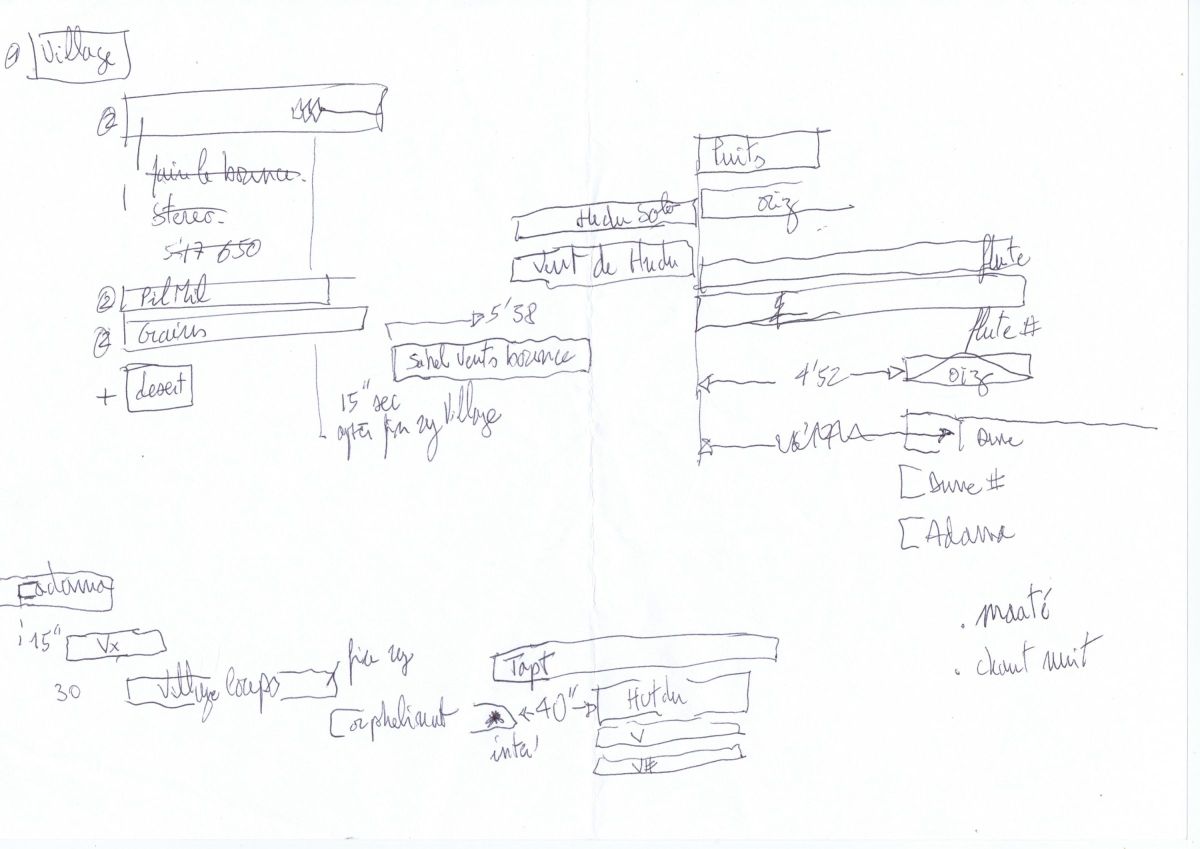 ① Village
②
faire le bounce.
Stereo.
5'17 650
② Pil Mil
② Grains
+ desert
5'38
Sahel Vents bounce
15" sec
après fin rg Village
Puits
oiz
Hudu Solo
Vent de Hudu
flute
flute #
4'52
oiz
Dune
Dune #
Adama
. maaté
. chant nuit
adama
15" Vx
30 Village loups
fin rg
orphelinat
inta'
40"
Tapt
Hutdu
V
V#